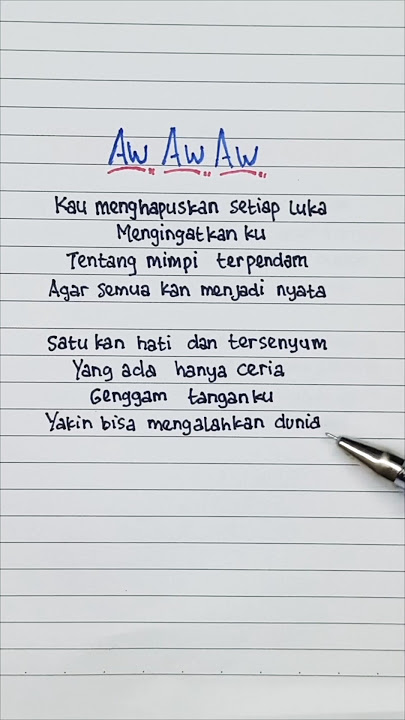 Aw Aw Aw
Kau menghapuskan setiap luka
Mengingatkan ku
Tentang mimpi terpendam
Agar semua kan menjadi nyata
Satu kan hati dan tersenyum
Yang ada hanya ceria
Genggam tangan ku
Yakin bisa mengalahkan dunia